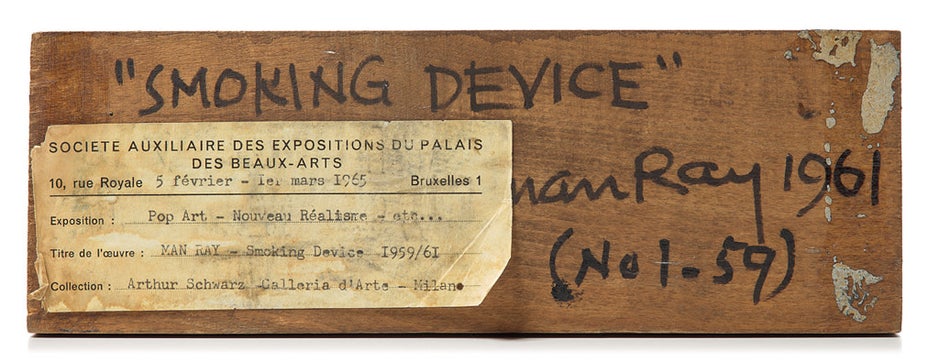 "SMOKING DEVICE"
SOCIETE AUXILIAIRE DES EXPOSITIONS DU PALAIS
DES BEAUX-ARTS
10, rue Royale 5 février - 1er mars 1965 Bruxelles 1
Exposition : Pop Art - Nouveau Réalisme - etc...
Titre de l'œuvre : MAN RAY - Smoking Device 1959/61
Collection : Arthur Schwarz -Galleria d'Arte - Milano
man Ray 1961
(No 1-59)